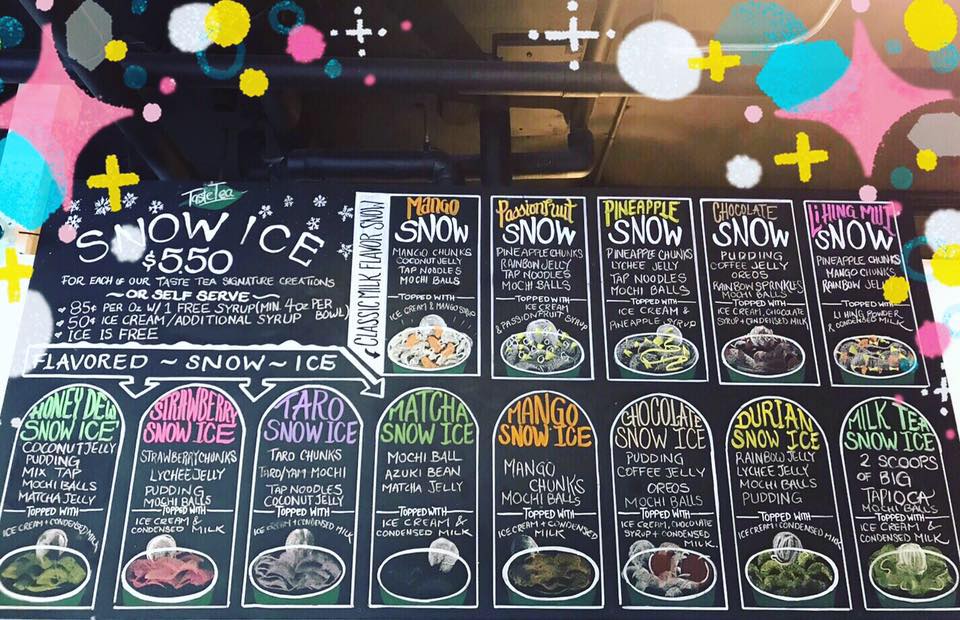 Taste Tea
SNOW ICE
$5.50
FOR EACH OF OUR TASTE TEA SIGNATURE CREATIONS
~OR SELF SERVE~
85¢ PER OZ W/ 1 FREE SYRUP (MIN. 4oz PER BOWL)
50¢ ICE CREAM/ADDITIONAL SYRUP
ICE IS FREE
FLAVORED ~ SNOW~ICE
CLASSIC MILK FLAVOR SNOW
MANGO
SNOW
MANGO CHUNKS
COCONUT JELLY
TAP NOODLES
MOCHI BALLS
TOPPED WITH
ICE CREAM & MANGO SYRUP
PASSIONFRUIT
SNOW
PINEAPPLE CHUNKS
RAINBOW JELLY
TAP NOODLES
MOCHI BALLS
TOPPED WITH
ICE CREAM
& PASSIONFRUIT SYRUP
PINEAPPLE
SNOW
PINEAPPLE CHUNKS
LYCHEE JELLY
TAP NOODLES
MOCHI BALLS
TOPPED WITH
ICE CREAM &
PINEAPPLE SYRUP
CHOCOLATE
SNOW
PUDDING
COFFEE JELLY
OREOS
RAINBOW SPRINKLES
MOCHI BALLS
TOPPED WITH
ICE CREAM, CHOCOLATE
SYRUP + CONDENSED MILK
LI HING MUI
SNOW
PINEAPPLE CHUNKS
MANGO CHUNKS
RAINBOW JELLY
TOPPED WITH
LI HING POWDER
& CONDENSED MILK
HONEY DEW
SNOW ICE
COCONUT JELLY
PUDDING
MIX TAP
MOCHI BALLS
MATCHA JELLY
TOPPED WITH
ICE CREAM + CONDENSED MILK
STRAWBERRY
SNOW ICE
STRAWBERRY CHUNKS
LYCHEE JELLY
PUDDING
MOCHI BALLS
TOPPED WITH
ICE CREAM &
CONDENSED MILK
TARO
SNOW ICE
TARO CHUNKS
TARO/YAM MOCHI
TAP NOODLES
COCONUT JELLY
TOPPED WITH
ICE CREAM + CONDENSED MILK
MATCHA
SNOW ICE
MOCHI BALL
AZUKI BEAN
MATCHA JELLY
TOPPED WITH
ICE CREAM &
CONDENSED MILK
MANGO
SNOW ICE
MANGO
CHUNKS
MOCHI BALLS
TOPPED WITH
ICE CREAM + CONDENSED
MILK
CHOCOLATE
SNOW ICE
PUDDING
COFFEE JELLY
OREOS
MOCHI BALLS
TOPPED WITH
ICE CREAM, CHOCOLATE
SYRUP + CONDENSED
MILK
DURIAN
SNOW ICE
RAINBOW JELLY
LYCHEE JELLY
MOCHI BALLS
PUDDING
TOPPED WITH
ICE CREAM + CONDENSED MILK
MILK TEA
SNOW ICE
2 SCOOPS
OF BIG
TAPIOCA
MOCHI BALLS
TOPPED WITH
ICE CREAM &
CONDENSED MILK